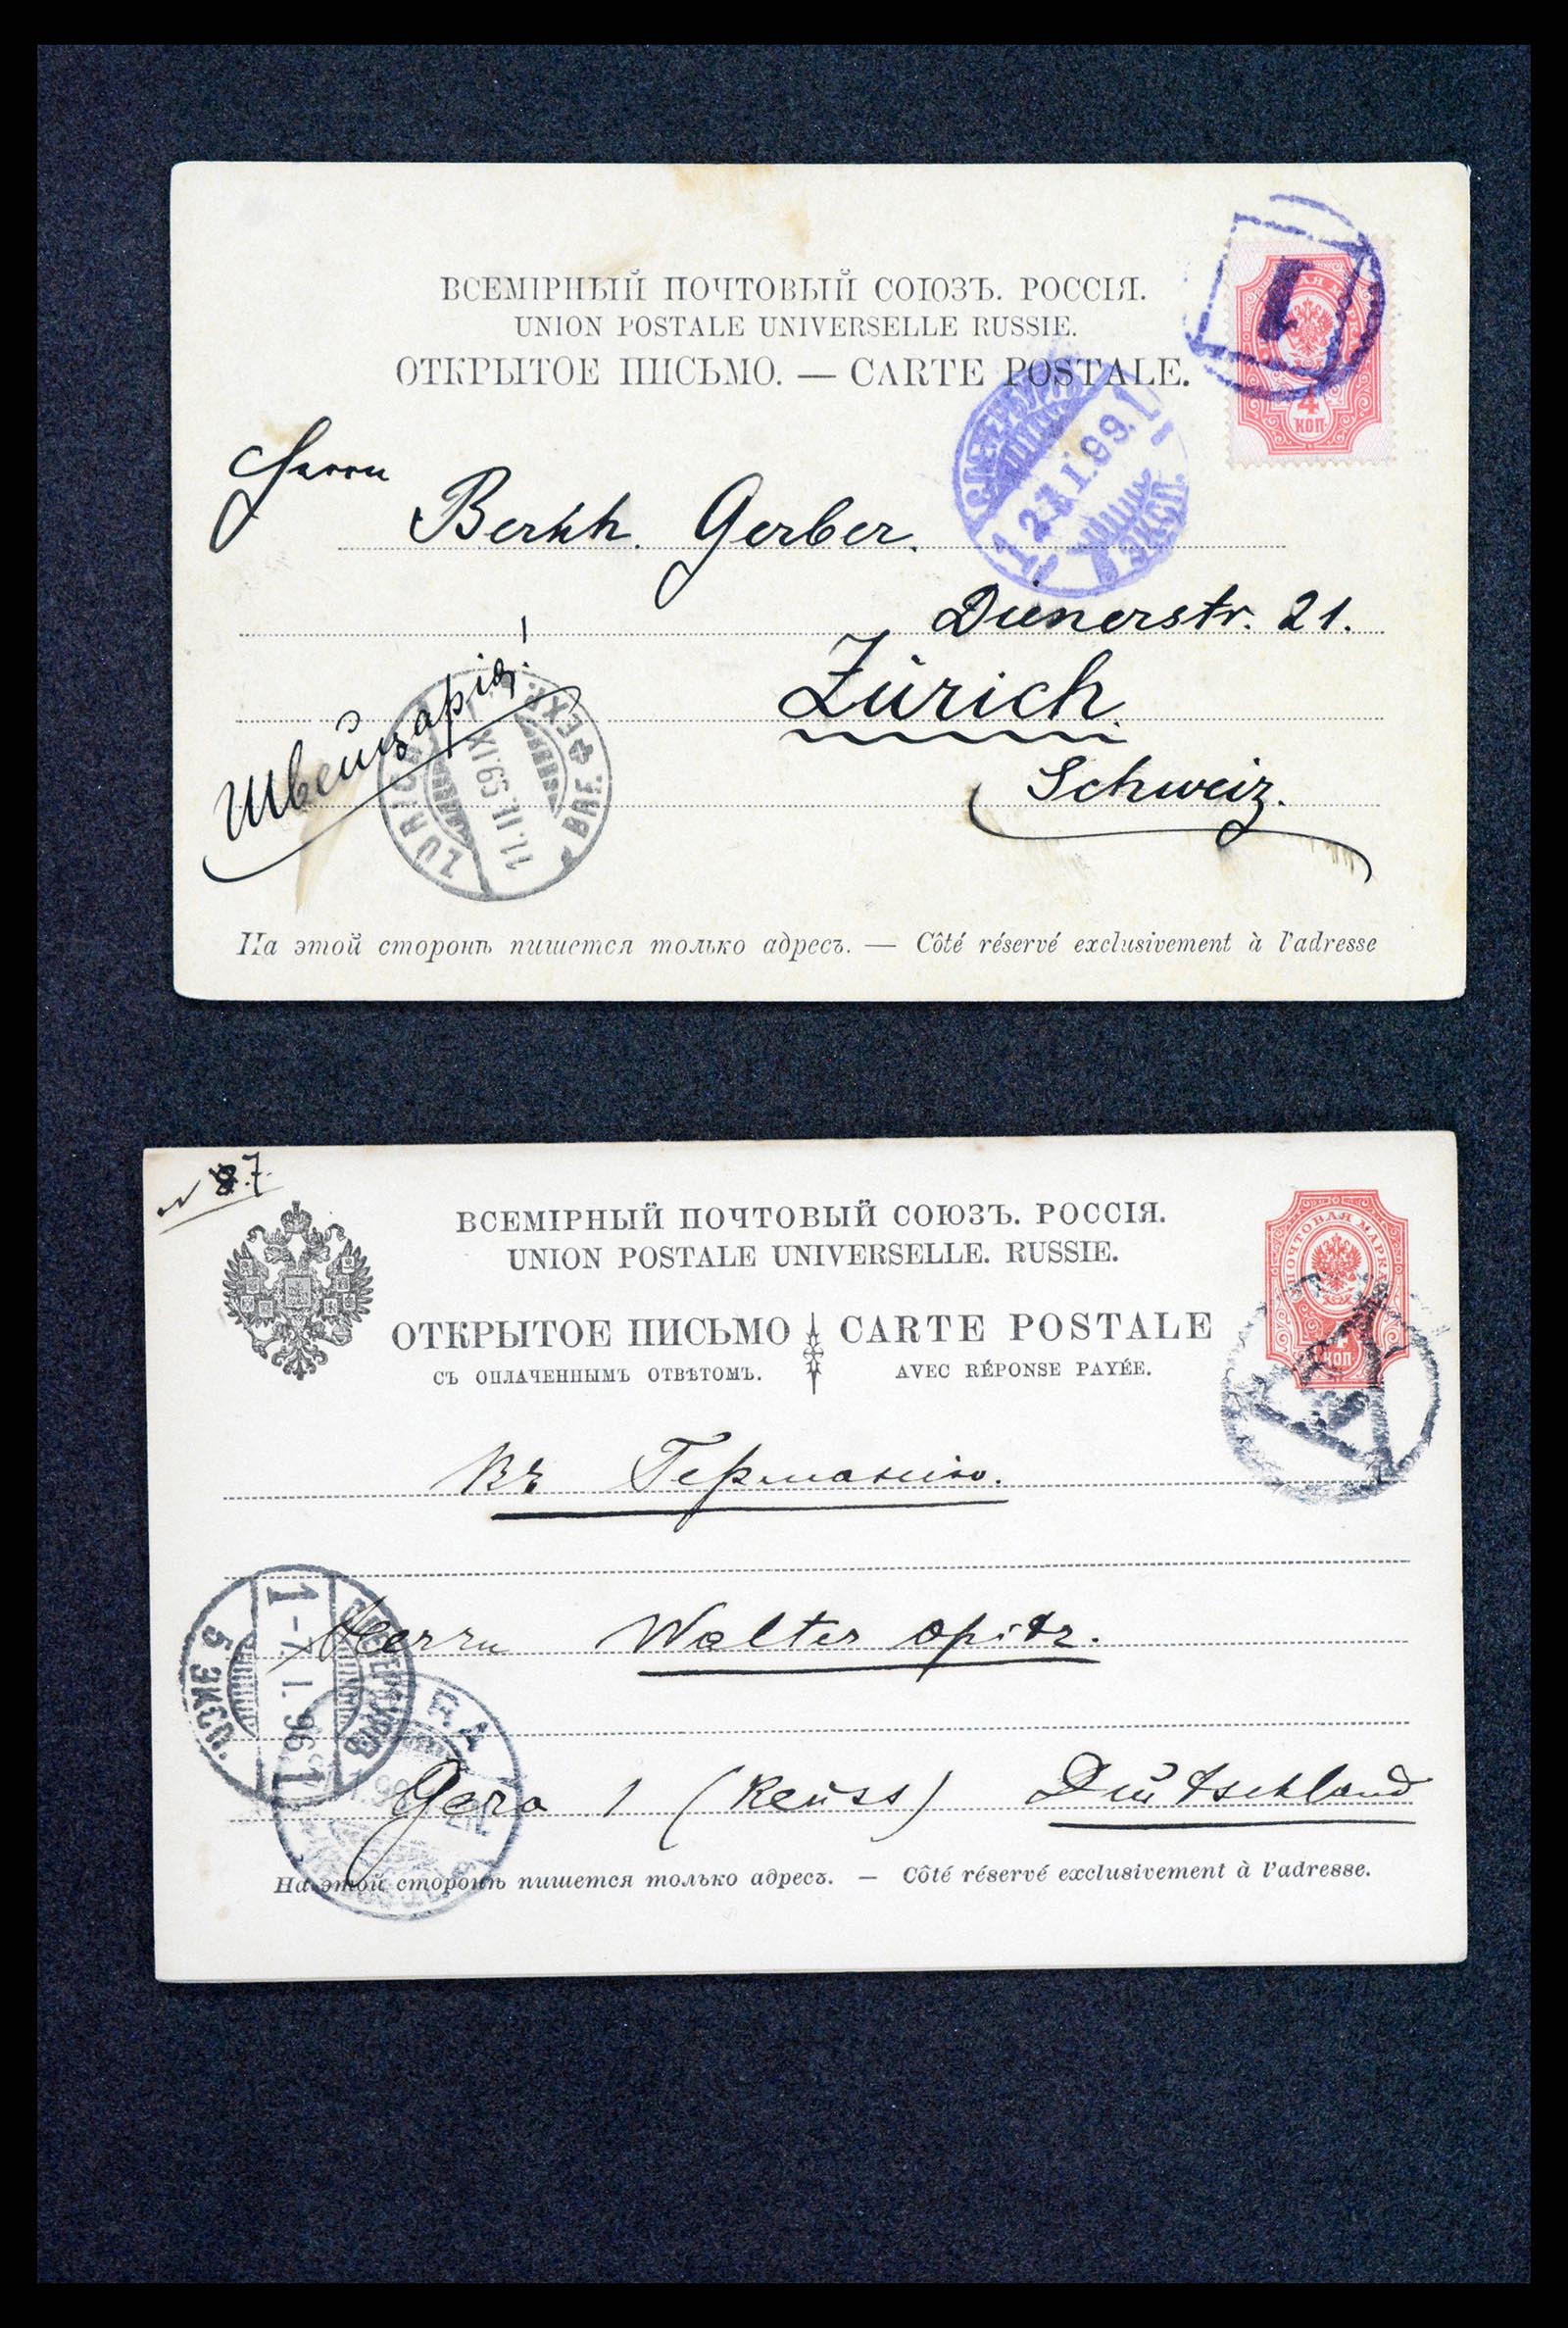 ВСЕМІРНЫЙ ПОЧТОВЫЙ СОЮЗЪ. РОССІЯ.
UNION POSTALE UNIVERSELLE RUSSIE.
ОТКРЫТОЕ ПИСЬМО. — CARTE POSTALE.
4
КОП
1
С.ПЕТЕРБУРГ
1 23.I.99.1
ЭКСП.
Herrn
Bernh. Gerber.
Dienerstr. 21.
Zürich.
Schweiz.
Швейцарія!
ZÜRICH
BRF. EXP.
11.II.99.IX
На этой сторонѣ пишется только адресъ. — Côté réservé exclusivement à l'adresse
N 87.
ВСЕМІРНЫЙ ПОЧТОВЫЙ СОЮЗЪ. РОССІЯ.
UNION POSTALE UNIVERSELLE. RUSSIE.
ОТКРЫТОЕ ПИСЬМО CARTE POSTALE
СЪ ОПЛАЧЕННЫМЪ ОТВѢТОМЪ. AVEC RÉPONSE PAYÉE.
ПОЧТОВАЯ МАРКА
КОП
Въ Германію.
1-7.I.96-1
5 ЭКСП.
Herrn Walter Opitz.
Gera 1 (Reuss) Deutschland
На этой сторонѣ пишется только адресъ. — Côté réservé exclusivement à l'adresse.